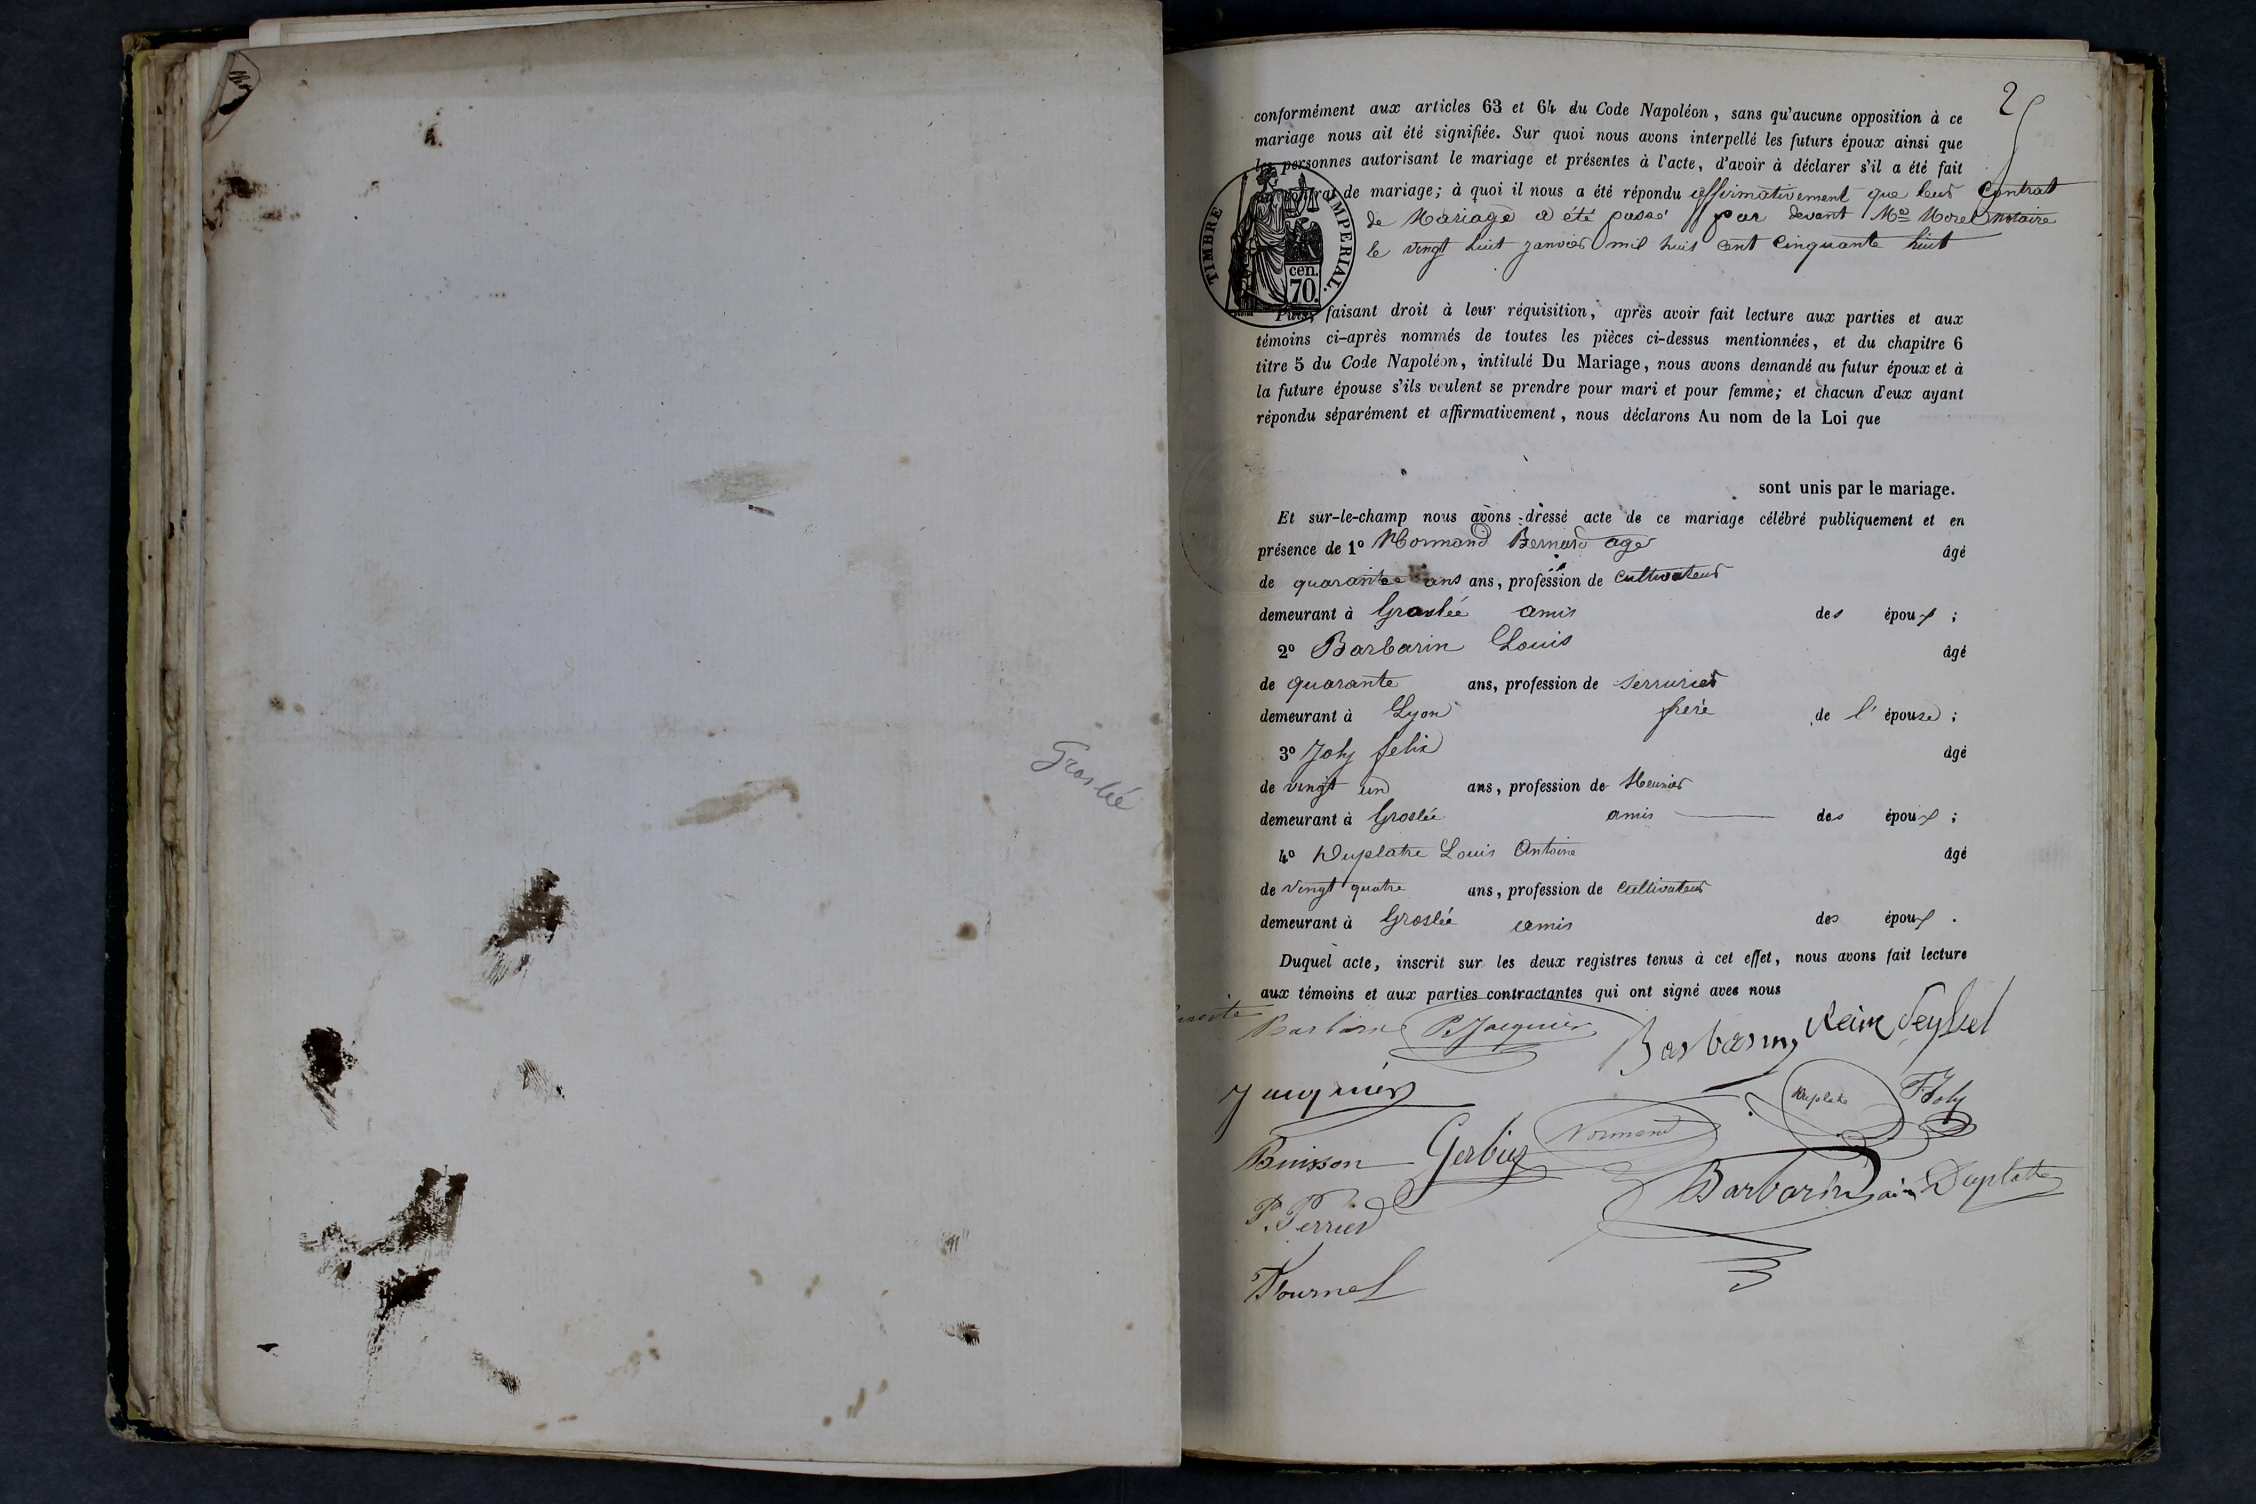 Groslée
2
conformément aux articles 63 et 64 du Code Napoléon, sans qu'aucune opposition à ce
mariage nous ait été signifiée. Sur quoi nous avons interpellé les futurs époux ainsi que
les personnes autorisant le mariage et présentes à l'acte, d'avoir à déclarer s'il a été fait
contrat de mariage; à quoi il nous a été répondu affirmativement que leur Contrat
de Mariage a été passé par devant Me Morel notaire
le vingt huit janvier mil huit cent cinquante huit
TIMBRE IMPERIAL.
cen.
70.
Puis, faisant droit à leur réquisition, après avoir fait lecture aux parties et aux
témoins ci-après nommés de toutes les pièces ci-dessus mentionnées, et du chapitre 6
titre 5 du Code Napoléon, intitulé Du Mariage, nous avons demandé au futur époux et à
la future épouse s'ils veulent se prendre pour mari et pour femme; et chacun d'eux ayant
répondu séparément et affirmativement, nous déclarons Au nom de la Loi que
sont unis par le mariage.
Et sur-le-champ nous avons dressé acte de ce mariage célébré publiquement et en
présence de 1º Normand Bernard age âgé
de quarante ans ans, profession de cultivateur
demeurant à Groslée amis des époux ;
2º Barbarin Louis âgé
de quarante ans, profession de serrurier
demeurant à Lyon frere de l'épouse ;
3º Joly felix âgé
de vingt un ans, profession de Meunier
demeurant à Groslée amis des époux ;
4º Duplatre Louis Antoine âgé
de vingt quatre ans, profession de cultivateur
demeurant à Groslée amis des époux .
Duquel acte, inscrit sur les deux registres tenus à cet effet, nous avons fait lecture
aux témoins et aux parties contractantes qui ont signé avec nous
Barbarin P. Jacquier Barbarin
Jacquier Duplatre F Joly
Buisson Gerbier Normand
Barbarin Duplatre
P. Perrier
Tournel